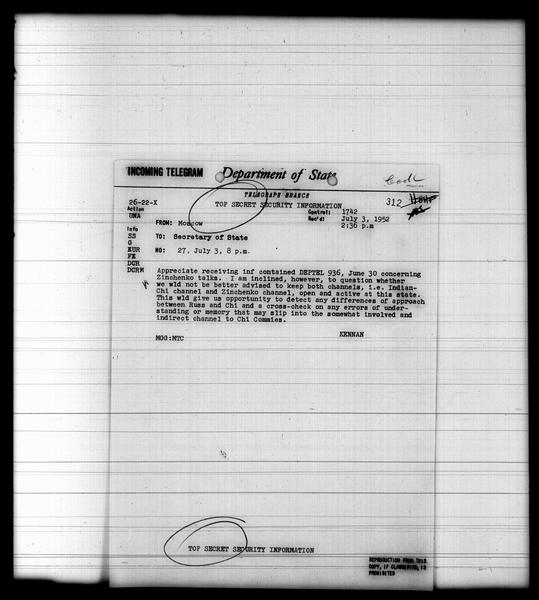 INCOMING TELEGRAM Department of State
TELEGRAPH BRANCH
26-22-X
TOP SECRET SECURITY INFORMATION
312
Action
UNA
Control: 1742
Rec'd: July 3, 1952
2:36 p.m
FROM: Moscow
Info
SS
G
EUR
FE
DCR
DCRM
TO: Secretary of State
NO: 27, July 3, 8 p.m.
Appreciate receiving inf contained DEPTEL 936, June 30 concerning
Zinchenko talks. I am inclined, however, to question whether
we wld not be better advised to keep both channels, i.e. Indian-
Chi channel and Zinchenko channel, open and active at this state.
This wld give us opportunity to detect any differences of approach
between Russ and Chi and a cross-check on any errors of under-
standing or memory that may slip into the somewhat involved and
indirect channel to Chi Commies.
KENNAN
MOG:MTC
TOP SECRET SECURITY INFORMATION
REPRODUCTION FROM THIS
COPY, IF CLASSIFIED, IS
PROHIBITED